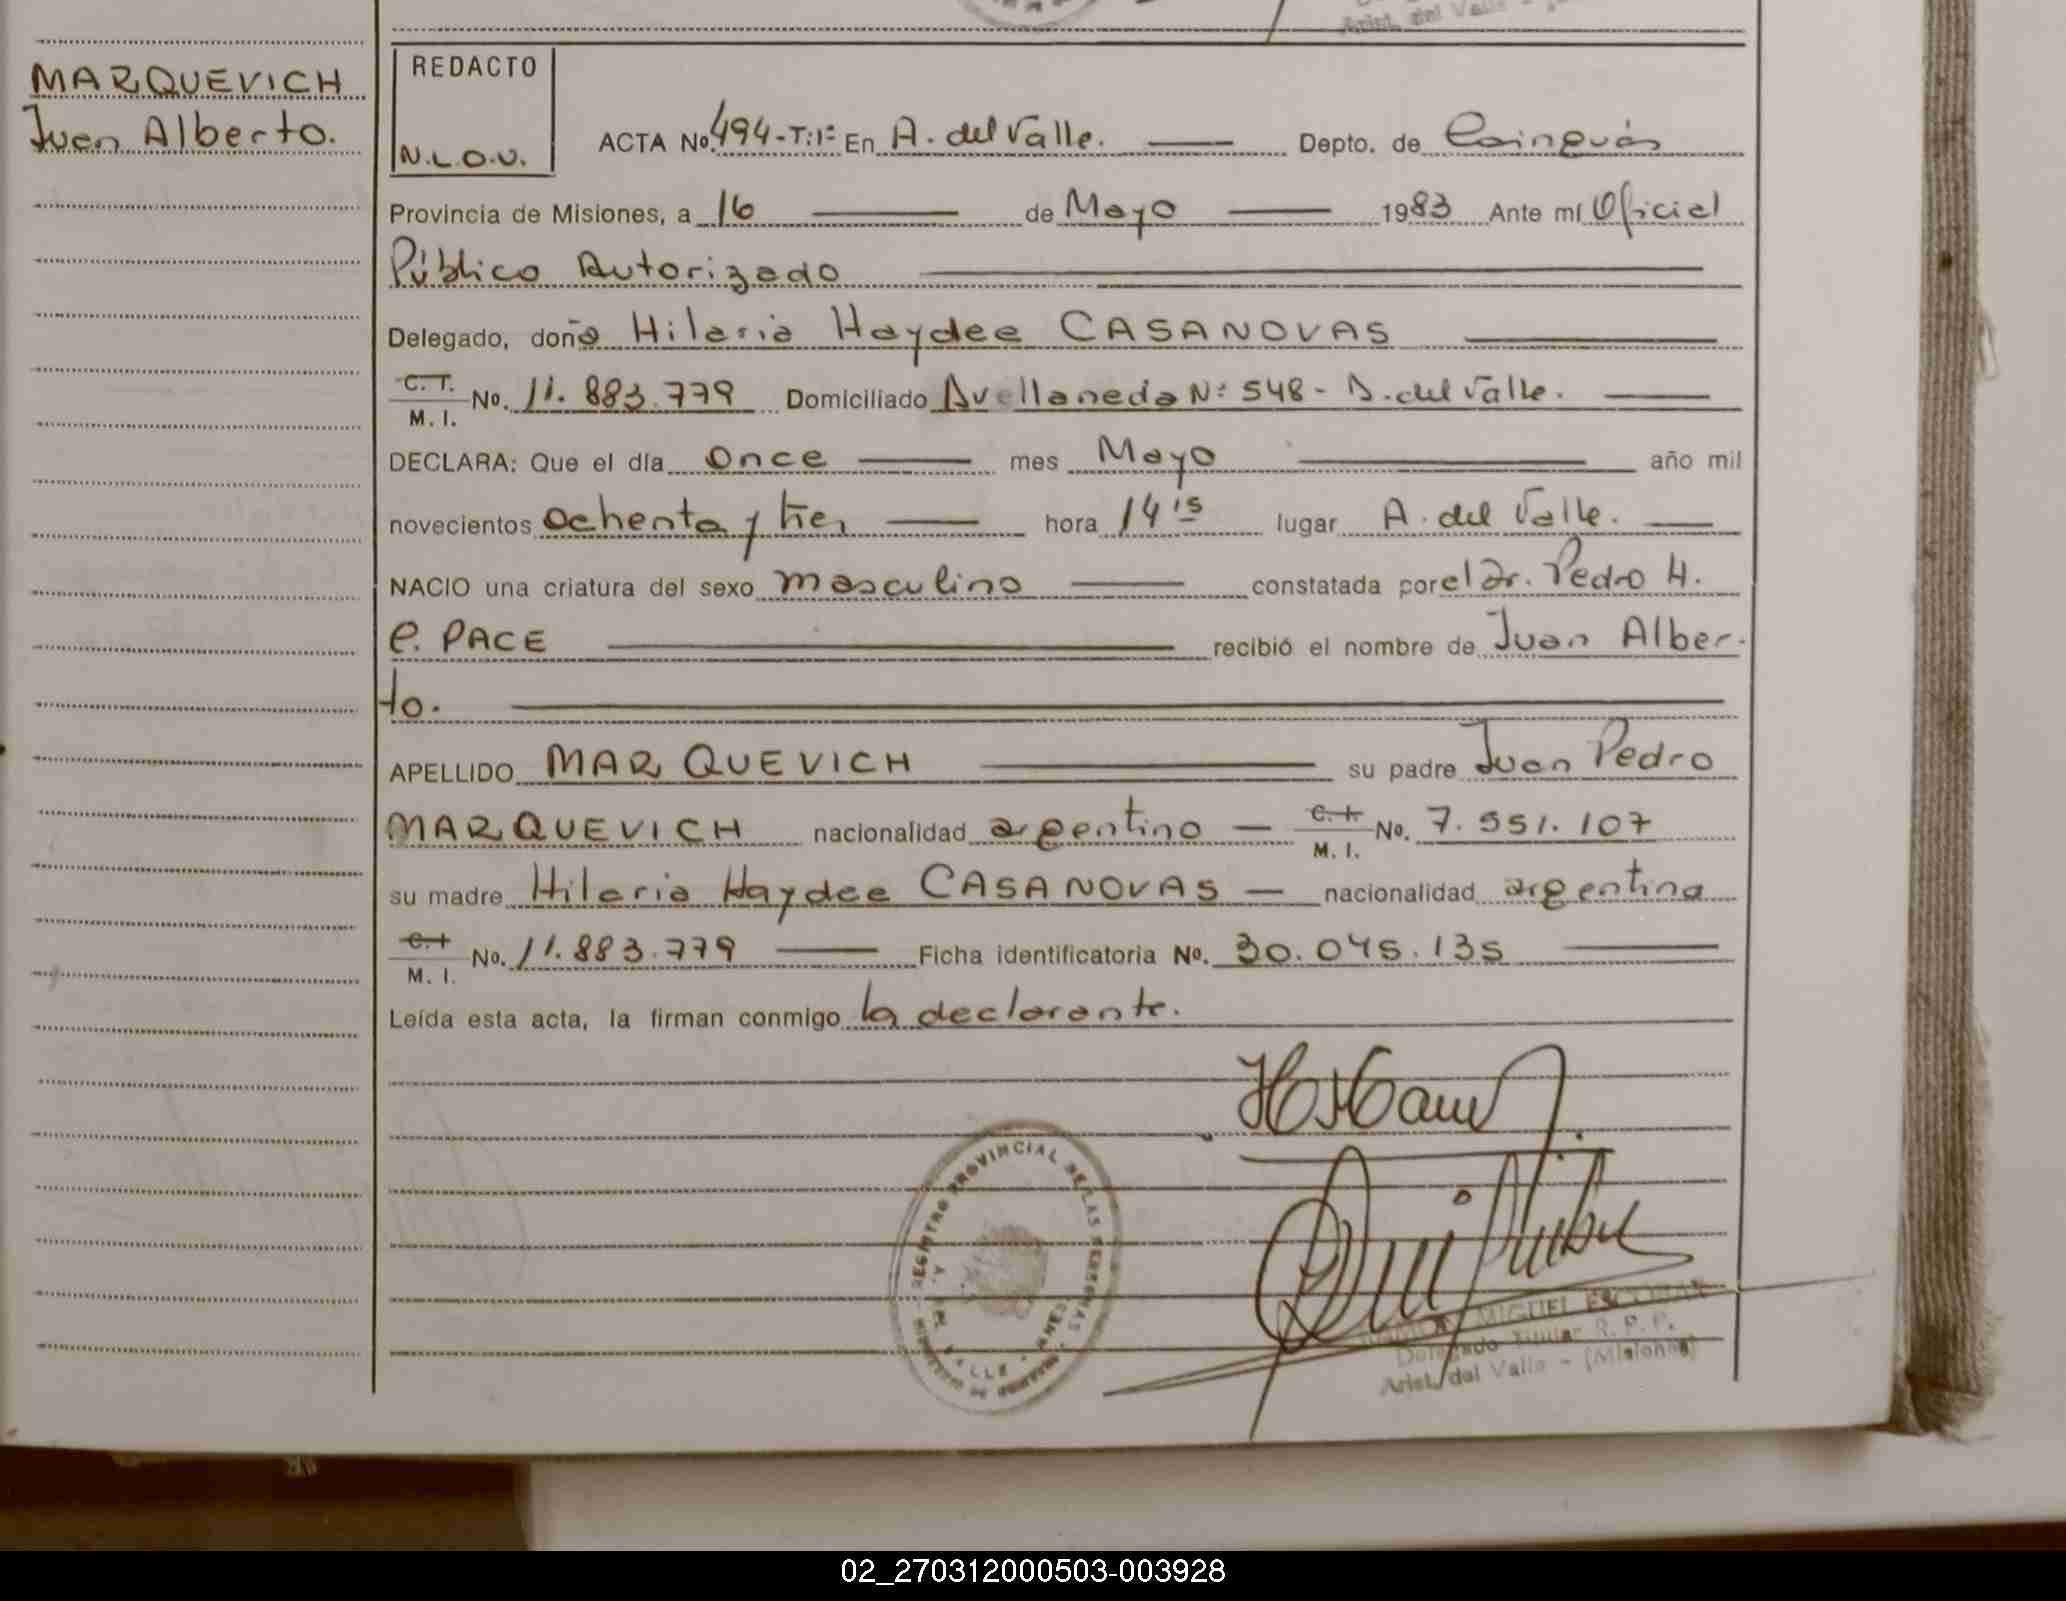 MARQUEVICH
Juan Alberto.
REDACTO
N.L.O.V.
ACTA No. 494-T:1º En A. del Valle. Depto. de Cainguás
Provincia de Misiones, a 16 de Mayo 1983 Ante mí Oficial
Público Autorizado
Delegado, doña Hilaria Haydee CASANOVAS
C.T. M. I. No. 11.883.779 Domiciliado Avellaneda Nº 548 - A. del Valle.
DECLARA: Que el día once mes Mayo año mil
novecientos ochenta y tres hora 14 15 lugar A. del Valle.
NACIO una criatura del sexo masculino constatada por el Dr. Pedro H.
C. PACE recibió el nombre de Juan Alber-
to.
APELLIDO MARQUEVICH su padre Juan Pedro
MARQUEVICH nacionalidad argentino C.I. M. I. No. 7.551.107
su madre Hilaria Haydee CASANOVAS nacionalidad argentina
C.I. M. I. No. 11.883.779 Ficha identificatoria No. 30.045.135
Leída esta acta, la firman conmigo la declarante.
REGISTRO PROVINCIAL DE LAS PERSONAS
A. DEL VALLE - MNES
MIGUEL ESCOBAR
Delegado Titular R. P. P.
Arist. del Valle - (Misiones)
02_270312000503-003928